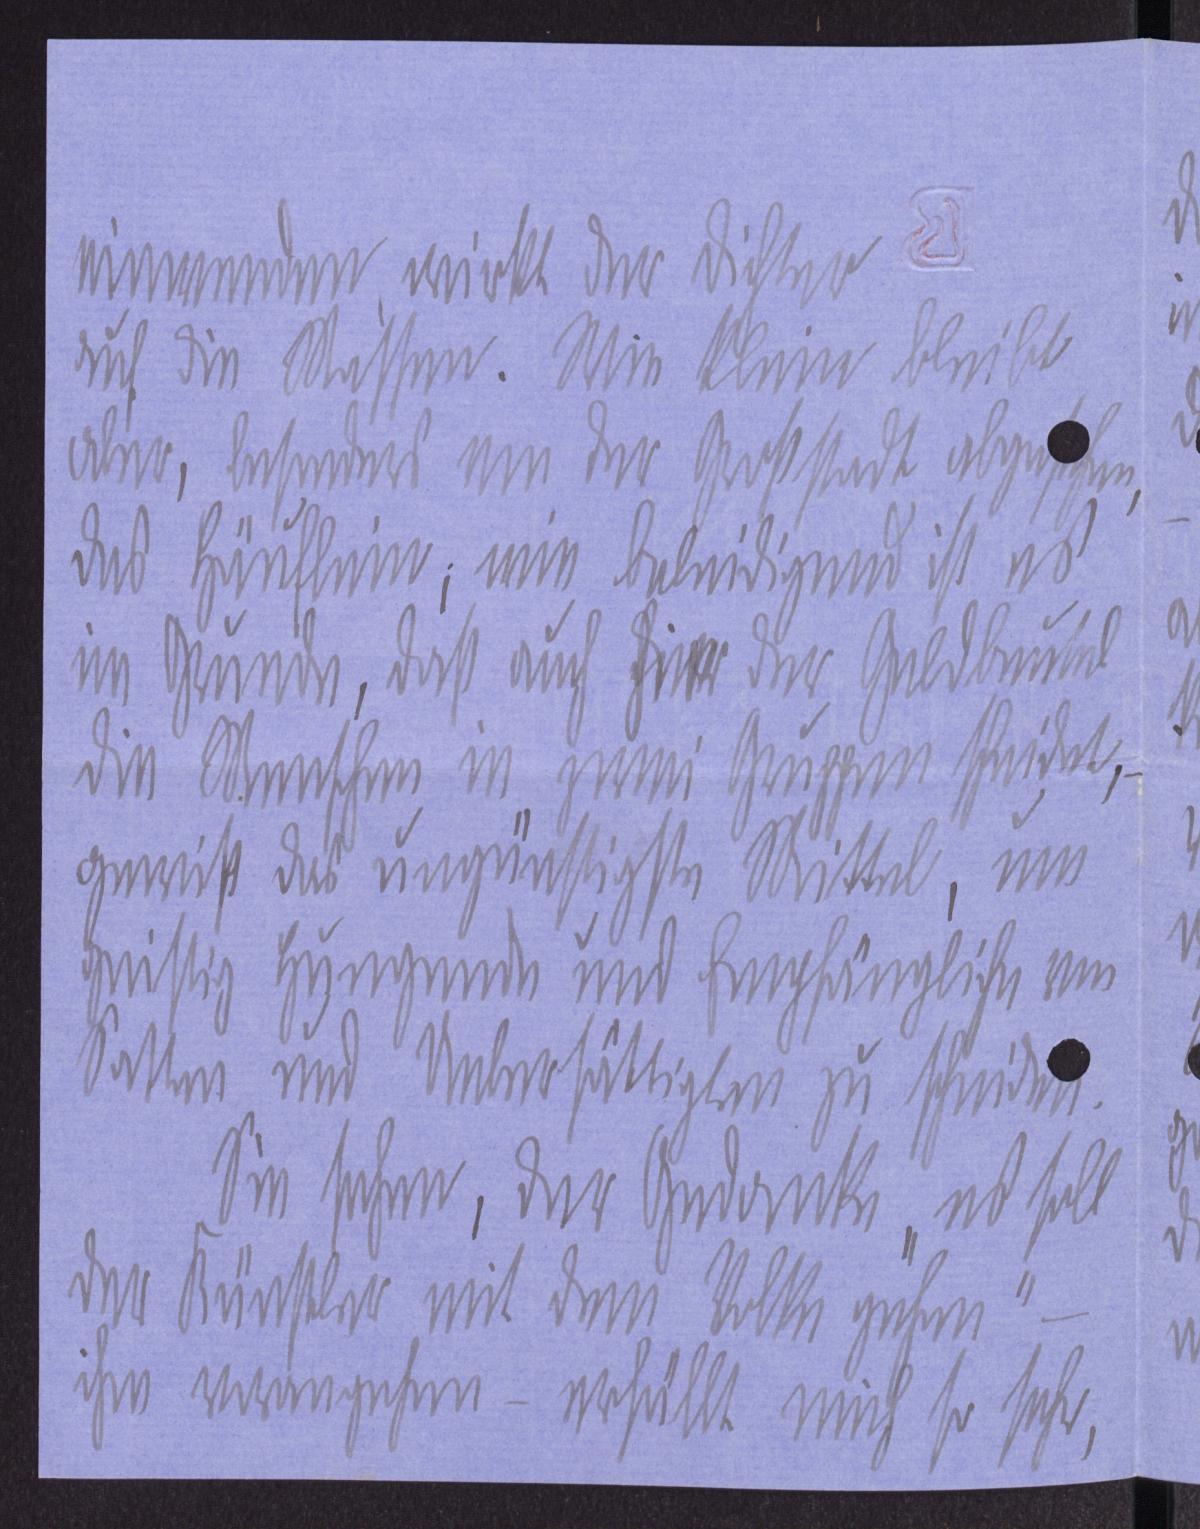 einwenden, wirkt der Dichter
auf die Massen. Wie klein bleibt
aber, besonders von der Großstadt abgesehen,
das Häuflein; wie beleidigend ist es
im Grunde, daß auch hier der Geldbeutel
die Menschen in zwei Gruppen scheidet,–
gewiß das ungünstigste Mittel, um
geistig Hungernde und Empfängliche von
Satten und Uebersättigten zu scheiden.
Sie sehen, der Gedanke „es soll
der Künstler mit dem Volke gehen“ –
ihm vorangehen – erfüllt mich so sehr,